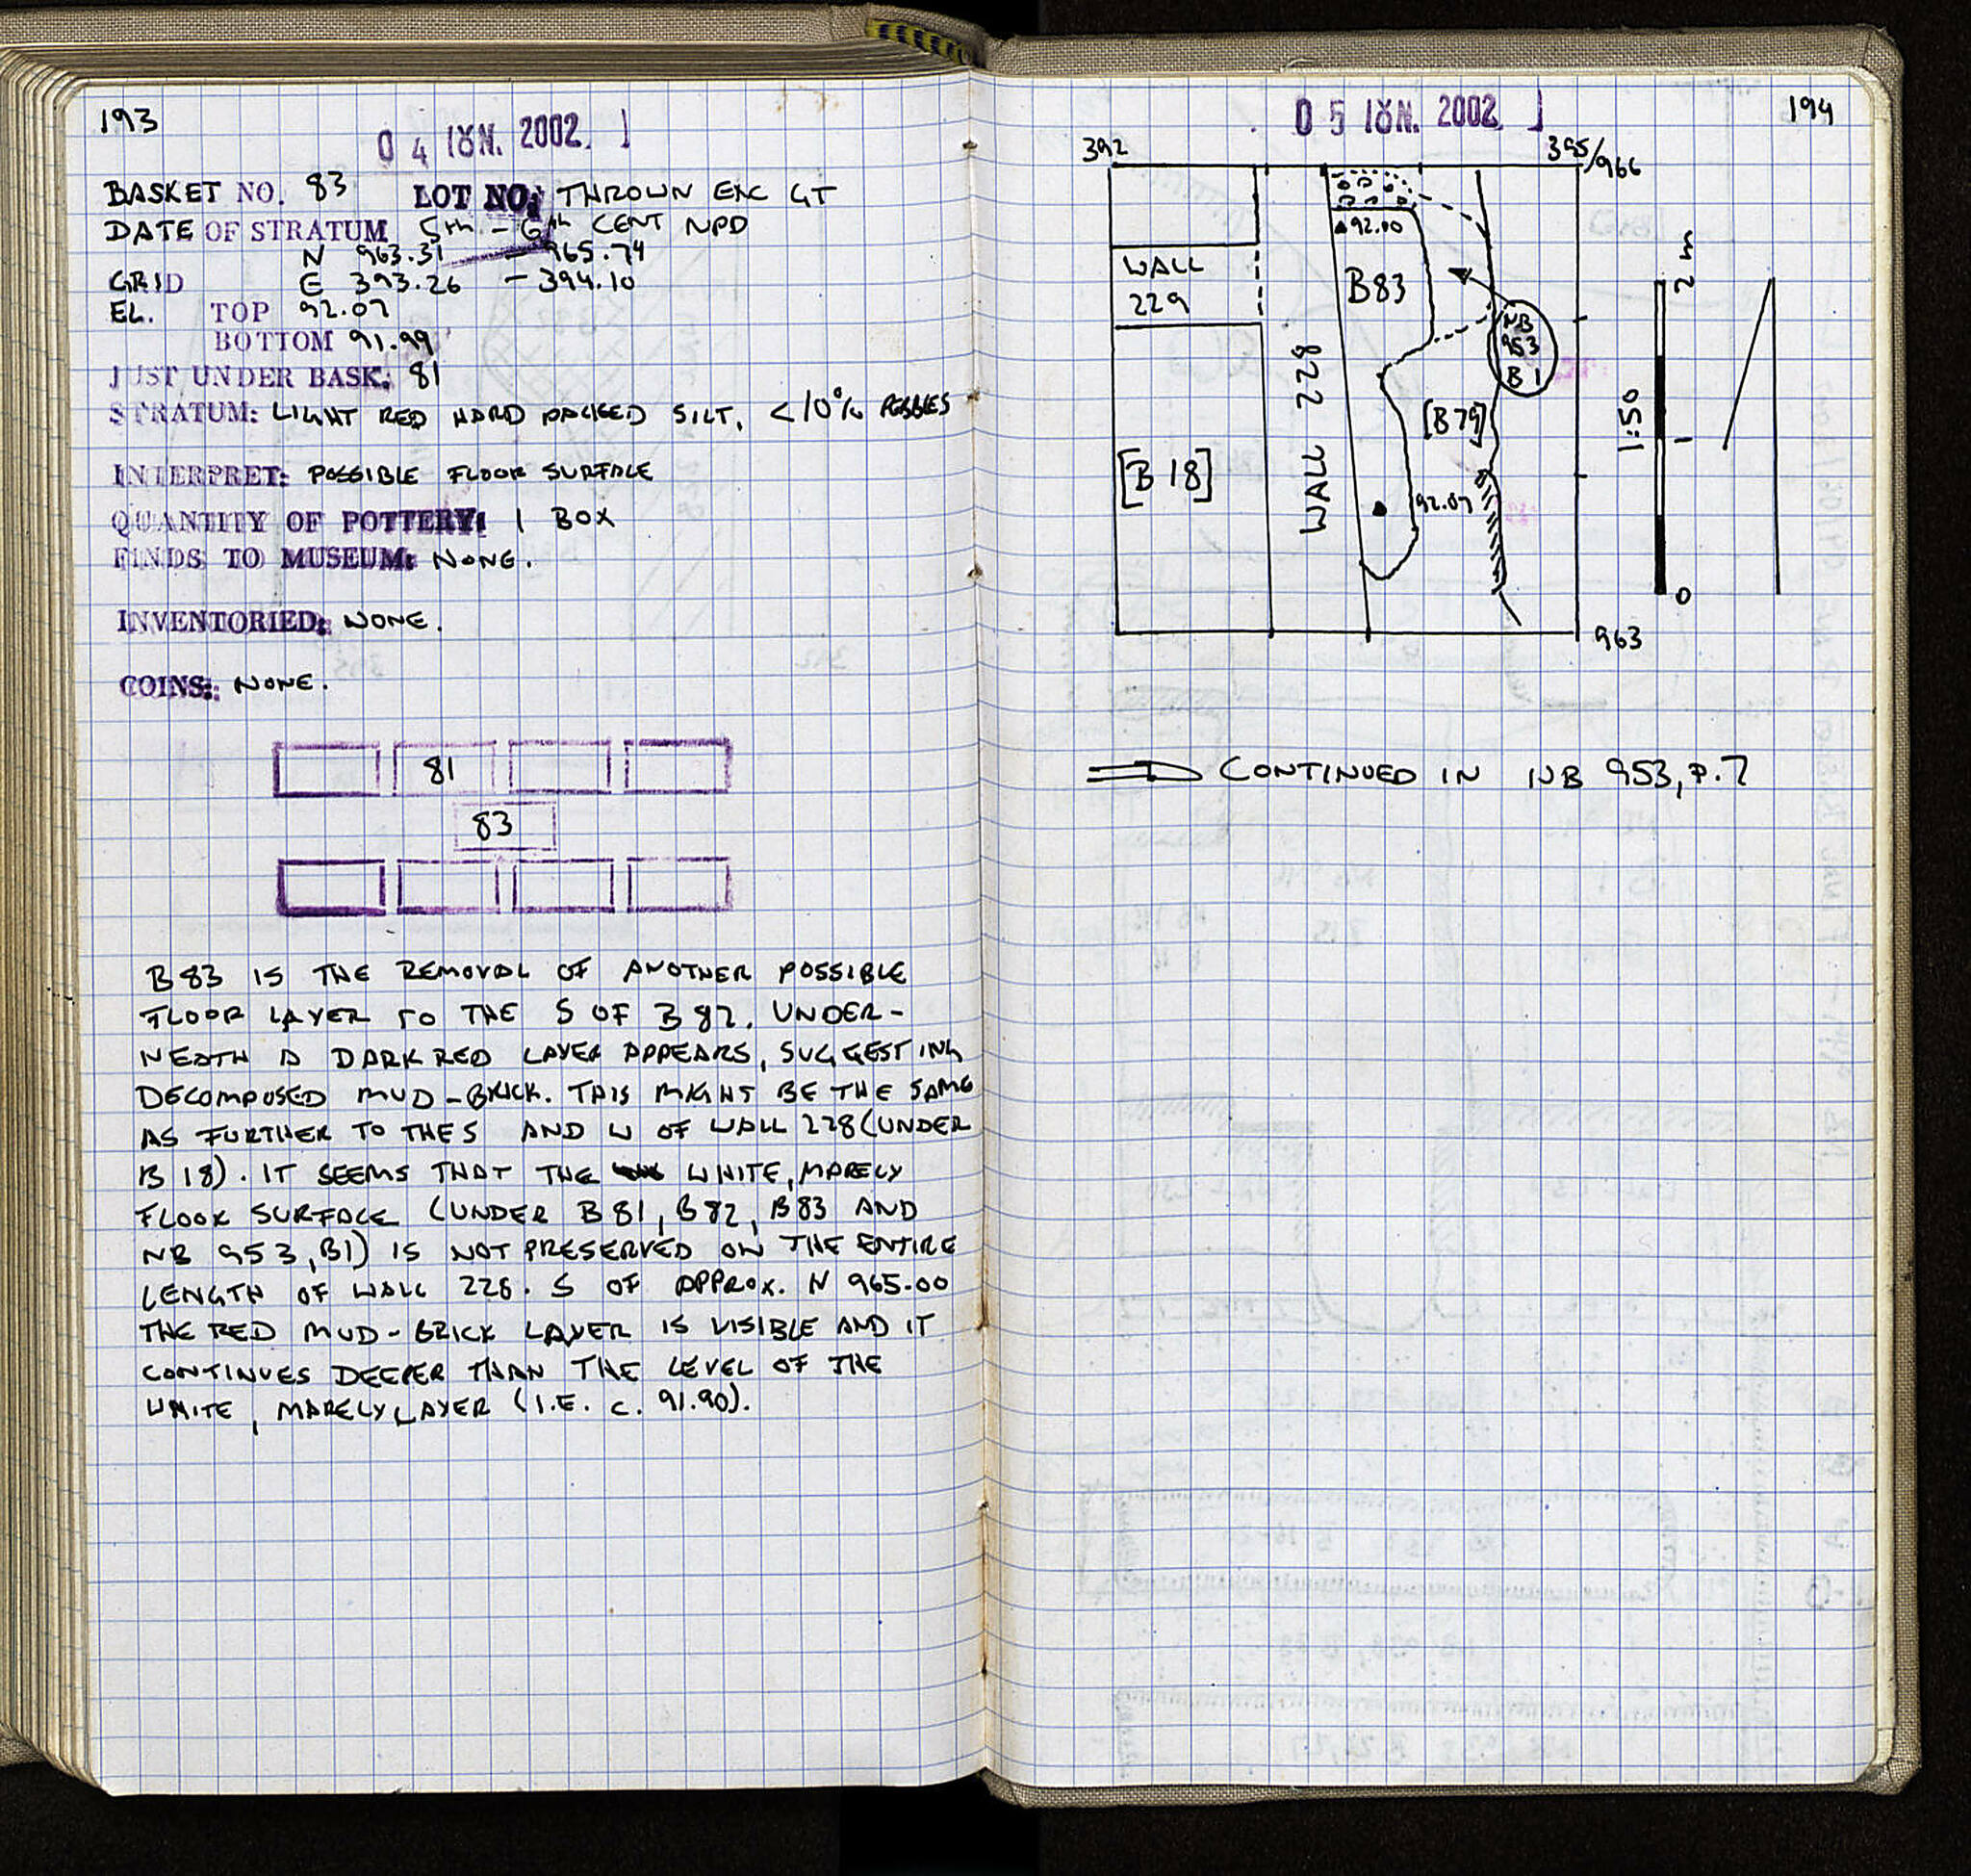 193
0 4 ΙΟΥΝ. 2002
BASKET NO. 83 LOT NO: THROWN EXC GT
DATE OF STRATUM 5th - 6th CENT NPD
N 963.31 - 965.74
GRID E 393.26 - 394.10
EL. TOP 92.07
BOTTOM 91.99
JUST UNDER BASK: 81
STRATUM: LIGHT RED HARD PACKED SILT, <10% PEBBLES
INTERPRET: POSSIBLE FLOOR SURFACE
QUANTITY OF POTTERY: 1 BOX
FINDS TO MUSEUM: NONE.
INVENTORIED: NONE.
COINS: NONE.
81
83
B 83 IS THE REMOVAL OF ANOTHER POSSIBLE
FLOOR LAYER TO THE S OF B 82. UNDER-
NEATH A DARK RED LAYER APPEARS, SUGGESTING
DECOMPOSED MUD-BRICK. THIS MIGHT BE THE SAME
AS FURTHER TO THE S AND W OF WALL 228 (UNDER
B 18). IT SEEMS THAT THE WHITE, MARELY
FLOOR SURFACE (UNDER B 81, B 82, B 83 AND
NB 953, B1) IS NOT PRESERVED ON THE ENTIRE
LENGTH OF WALL 228. S OF APPROX. N 965.00
THE RED MUD-BRICK LAYER IS VISIBLE AND IT
CONTINUES DEEPER THAN THE LEVEL OF THE
WHITE, MARELY LAYER (I.E. c. 91.90).
0 5 ΙΟΥΝ. 2002
194
392
395/966
92.00
WALL
229
B83
NB
953
B 1
WALL 228
[B 79]
[B 18]
92.07
2 m
1:50
1
0
963
CONTINUED IN NB 953, P. 7